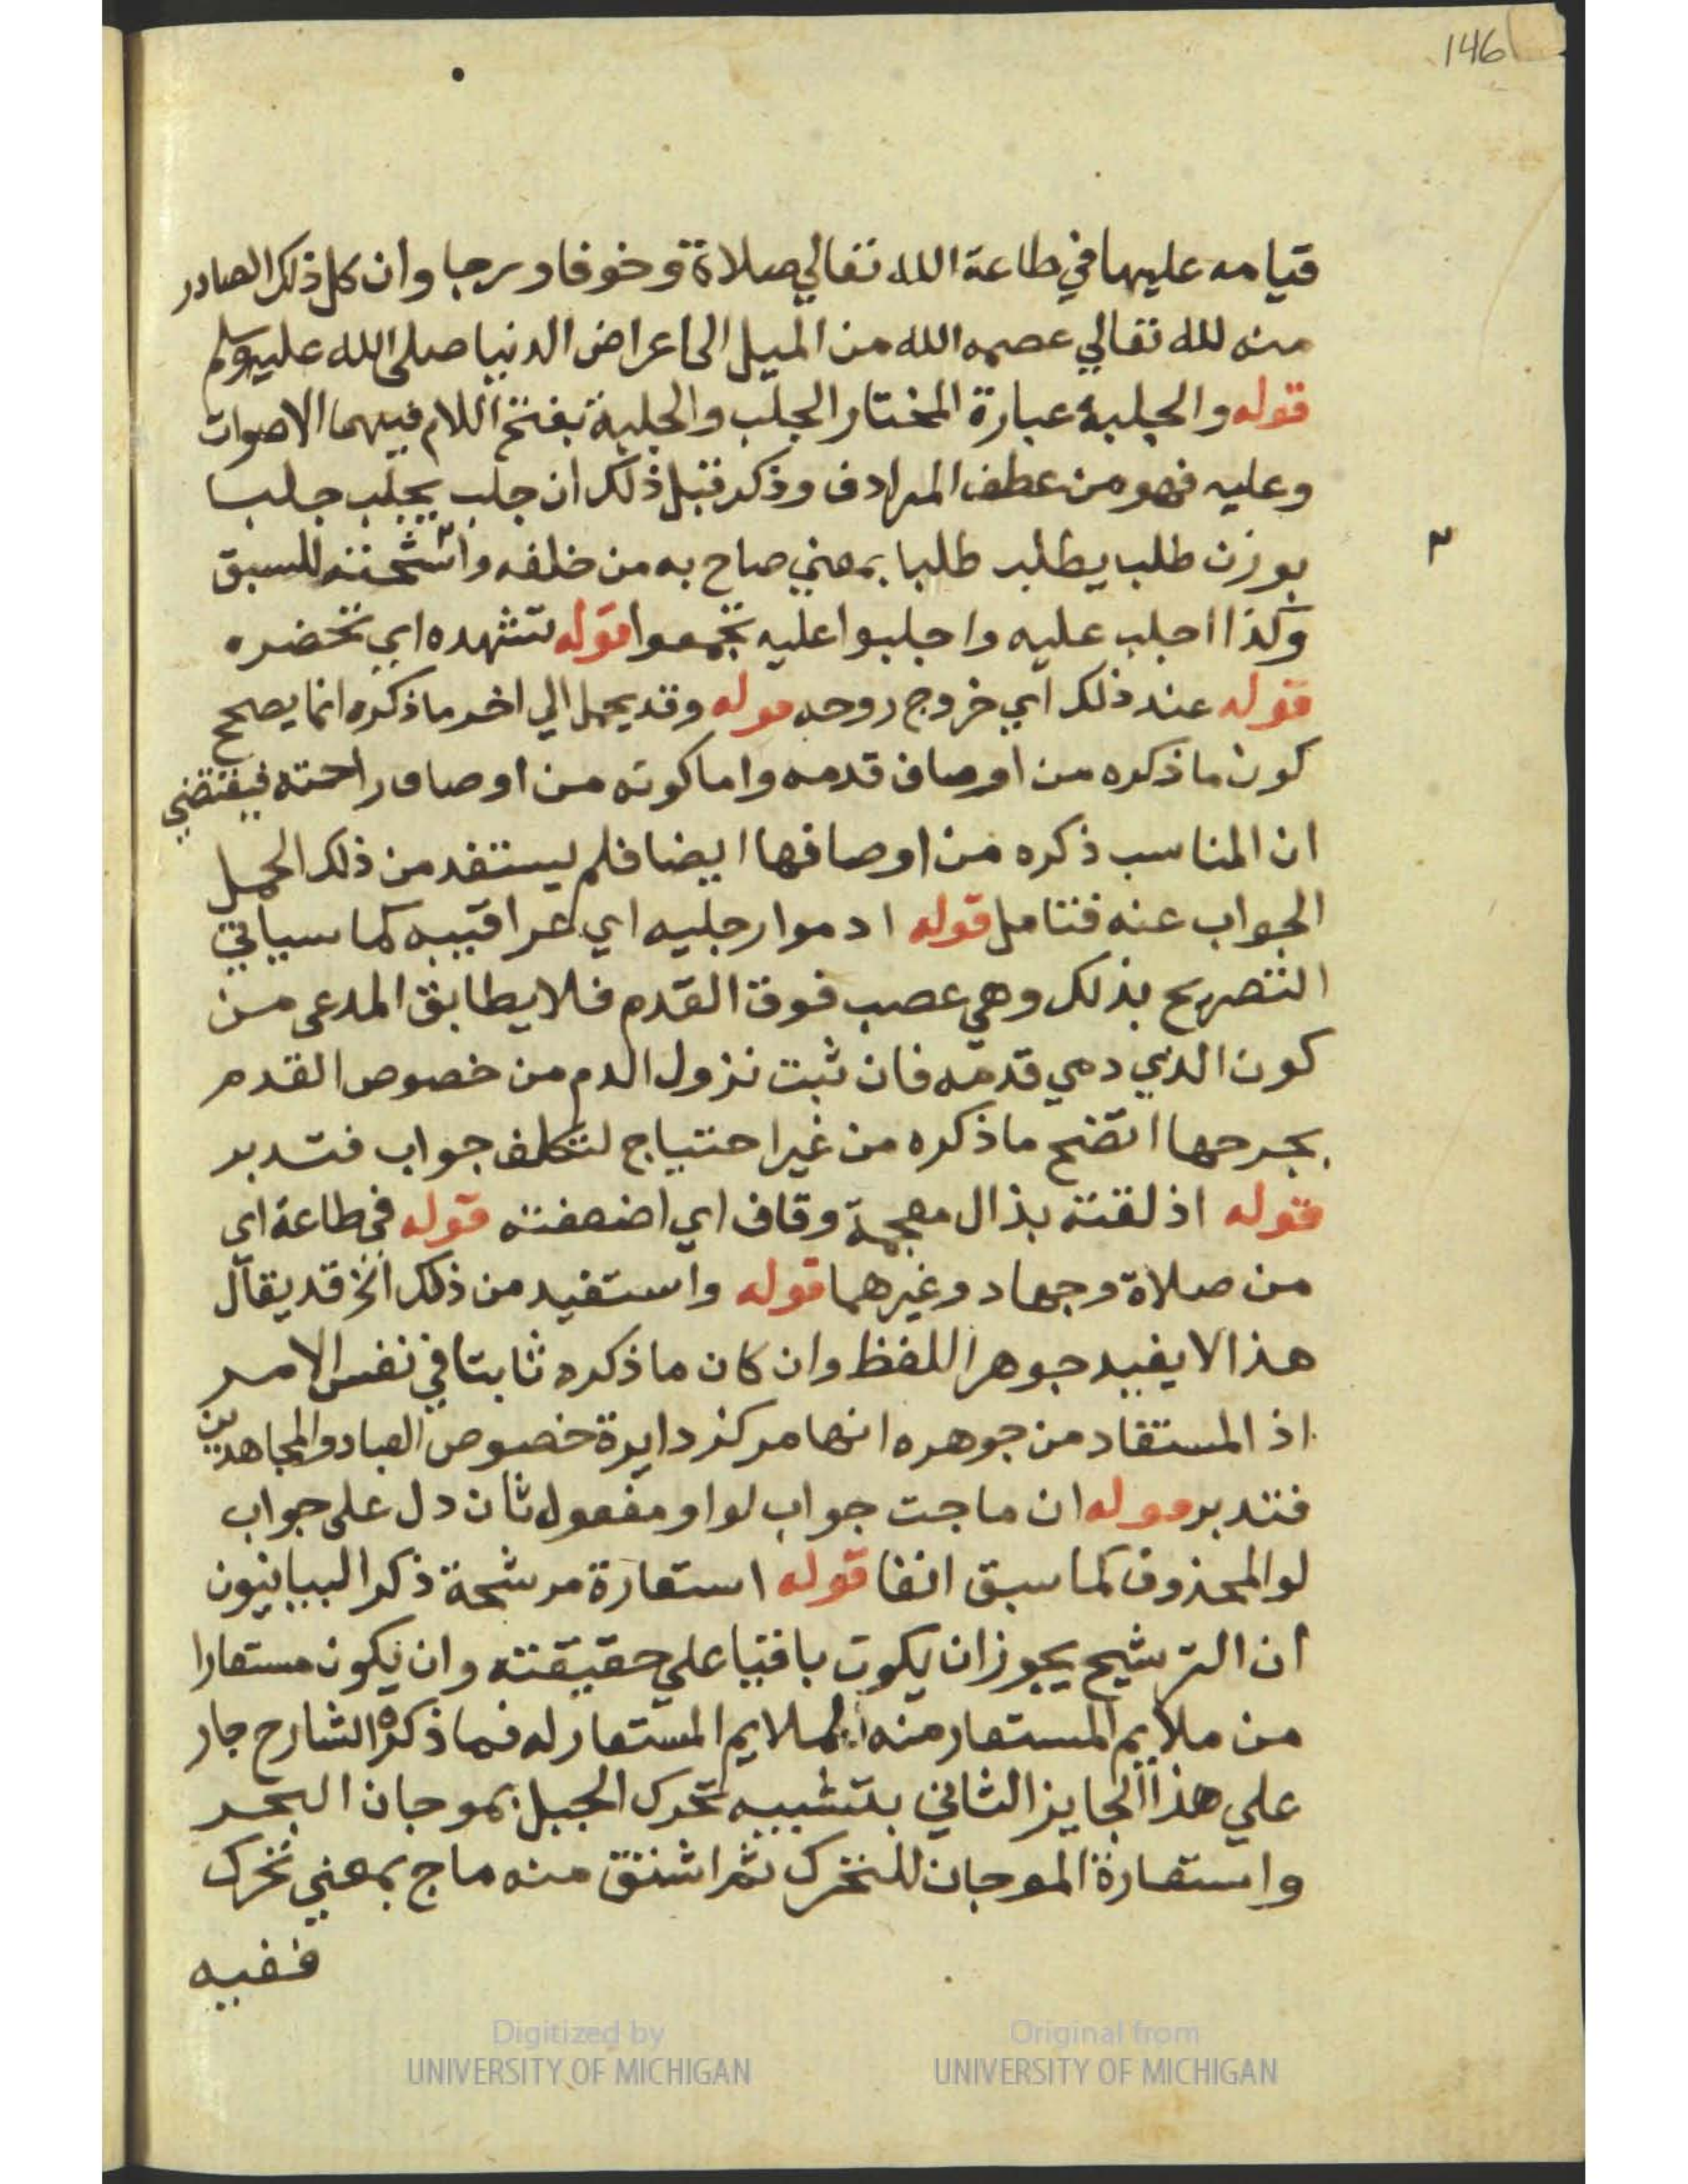 146
قيامه عليها في طاعة الله تعالي صلاة وخوفا ورجا وان كل ذلك الصادر
منه لله تعالي عصمه الله من الميل الى اعراض الدنيا صلى الله عليه وسلم
قوله والجلبة عبارة المختار الجلب والجلبة بفتح اللام فيهما الاصوات
وعليه فهو من عطف المرادف وذكر قبل ذلك ان جلب يجلب جلبا
بوزن طلب يطلب طلبا بمعني صاح به من خلفه واستحثه للسبق
وكذا اجلب عليه واجلبوا عليه تجمعوا قوله تشهده اي تحضره
قوله عند ذلك اي خروج روحه قوله وقد يحمل الي اخر ما ذكره انما يصحح
كون ما ذكره من اوصاف قدمه واما كونه من اوصاف راحته فيقتضي
ان المناسب ذكره من اوصافها ايضا فلم يستفد من ذلك الحمل
الجواب عنه فتامل قوله ادموا رجليه اي عراقيبه كما سياتي
التصريح بذلك وهي عصب فوق القدم فلا يطابق المدعى من
كون الذي دمي قدمه فان ثبت نزول الدم من خصوص القدم
بجرحها اتضح ما ذكره من غير احتياج لتكلف جواب فتدبر
قوله اذلقته بذال معجمة وقاف اي اضعفته قوله في طاعة اي
من صلاة وجهاد وغيرهما قوله واستفيد من ذلك الخ قد يقال
هذا لا يفيد جوهر اللفظ وان كان ما ذكره ثابتا في نفس الامر
اذ المستفاد من جوهره انها مركز دايرة خصوص العباد والمجاهدين
فتدبر قوله ان ماجت جواب لو او مفعول ثان دل على جواب
لو المحذوف كما سبق انفا قوله استعارة مرشحة ذكر البيانيون
ان الترشيح يجوز ان يكون باقيا علي حقيقته وان يكون مستعارا
من ملايم المستعار منه لملايم المستعار له فما ذكره الشارح جار
علي هذا الجايز الثاني بتشبيه تحرك الجبل بموجان البحر
واستعارة الموجان للتحرك ثم اشتق منه ماج بمعني تحرك
ففيه
Digitized by
UNIVERSITY OF MICHIGAN
Original from
UNIVERSITY OF MICHIGAN